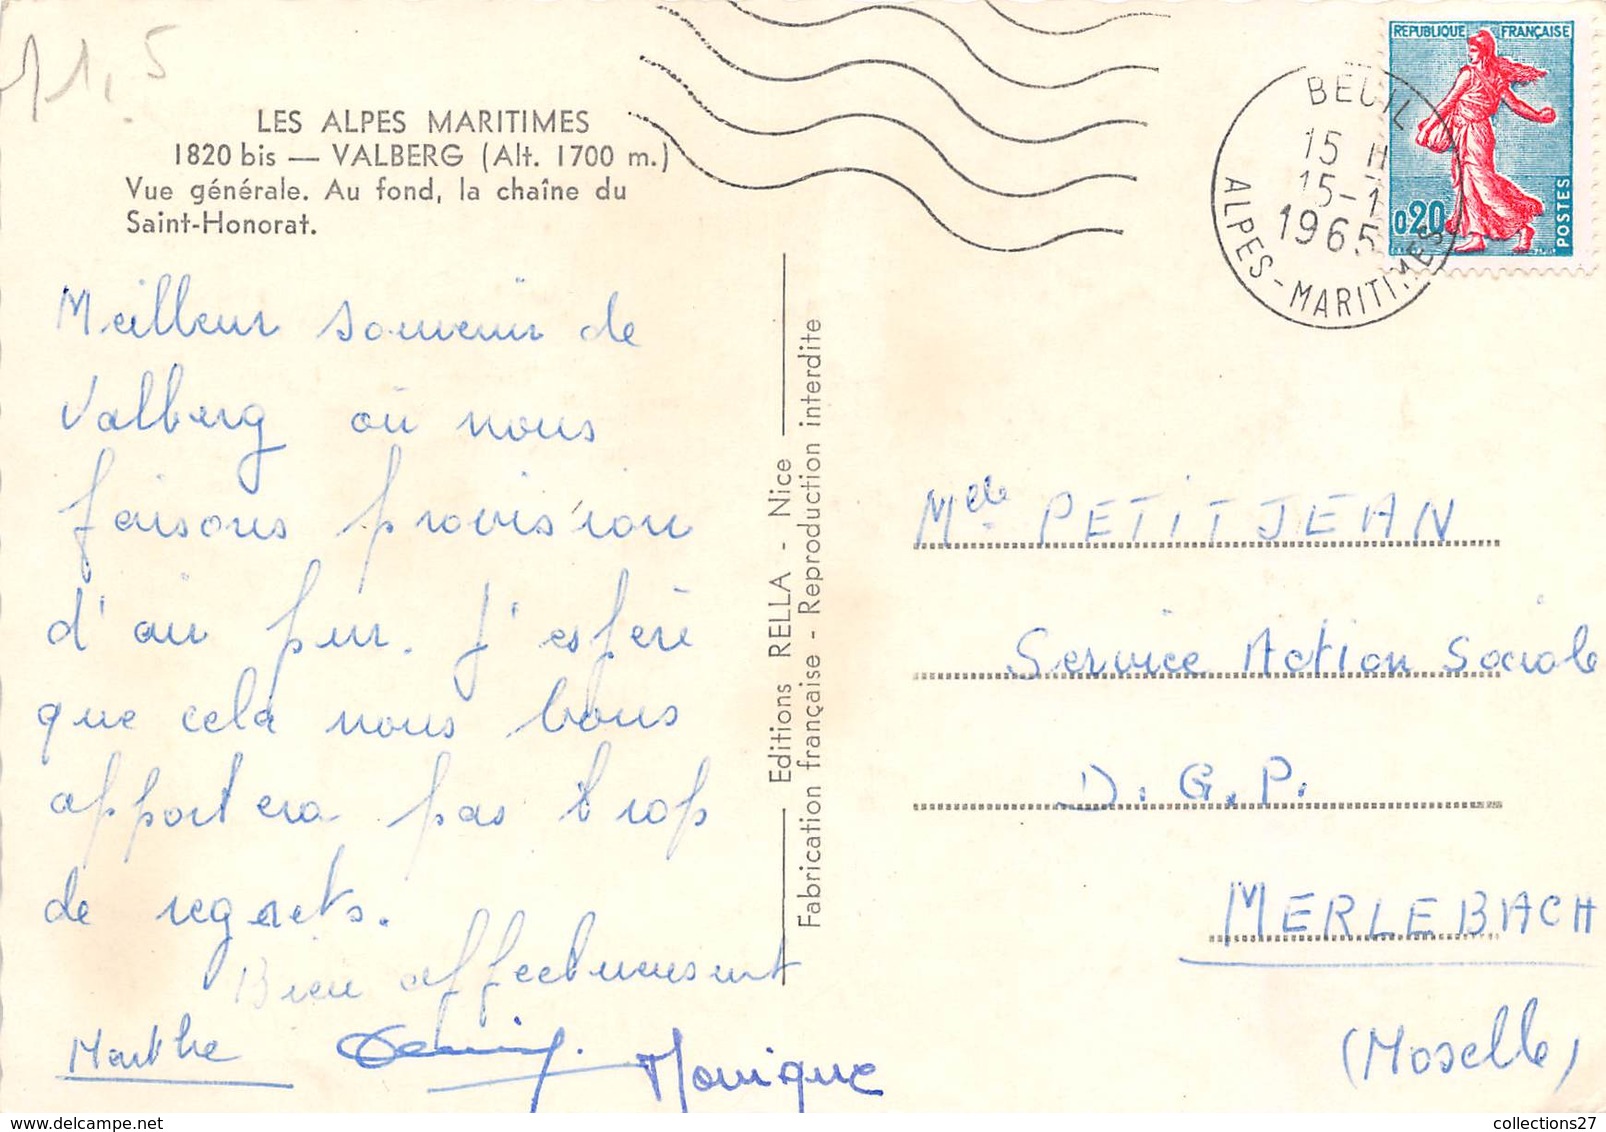 11,5
LES ALPES MARITIMES
1820 bis — VALBERG (Alt. 1700 m.)
Vue générale. Au fond, la chaîne du
Saint-Honorat.
Meilleur souvenir de
Valberg où nous
faisons provision
d'air pur. J'espère
que cela nous vous
apportera pas trop
de regrets.
Bien affectueusement
Marthe
Monique
Editions RELLA - Nice
Fabrication française - Reproduction interdite
BEUIL
15 H
15-1
1965
ALPES-MARITIMES
REPUBLIQUE FRANÇAISE
0,20
POSTES
Melle PETITJEAN
Service Action Sociale
D. G. P.
MERLEBACH
(Moselle)
collections27